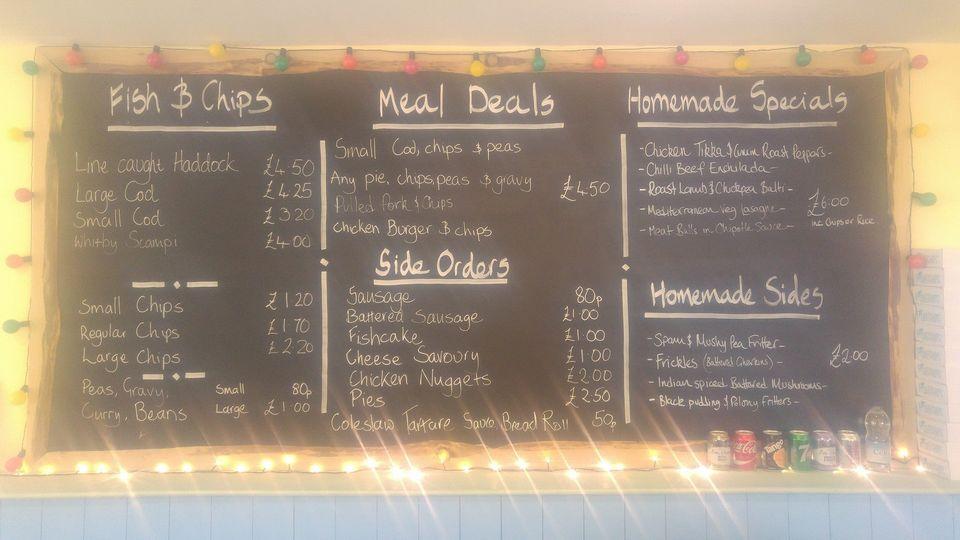 Fish & Chips
Line caught Haddock £4.50
Large Cod £4.25
Small Cod £3.20
Whitby Scampi £4.00
Small Chips £1.20
Regular Chips £1.70
Large Chips £2.20
Peas, Gravy, Small 80p
Curry, Beans Large £1.00
Meal Deals
Small Cod, chips & peas
Any pie, chips, peas & gravy £4.50
Pulled Pork & Chips
Chicken Burger & chips
Side Orders
Sausage 80p
Battered Sausage £1.00
Fishcake £1.00
Cheese Savoury £1.00
Chicken Nuggets £2.00
Pies £2.50
Coleslaw Tartare Sauce Bread Roll 50p
Homemade Specials
- Chicken Tikka & Roast Peppers -
- Chilli Beef Enchilada -
- Roast Lamb & Chickpea Balti -
- Mediterranean Veg lasagne - £6.00
- Meat Balls in Chipotle Sauce - inc Chips or Rice
Homemade Sides
- Spam & Mushy Pea Fritter -
- Frickles (Battered Gherkins) - £2.00
- Indian spiced Battered Mushrooms -
- Black pudding & Polony Fritters -
Tango
7